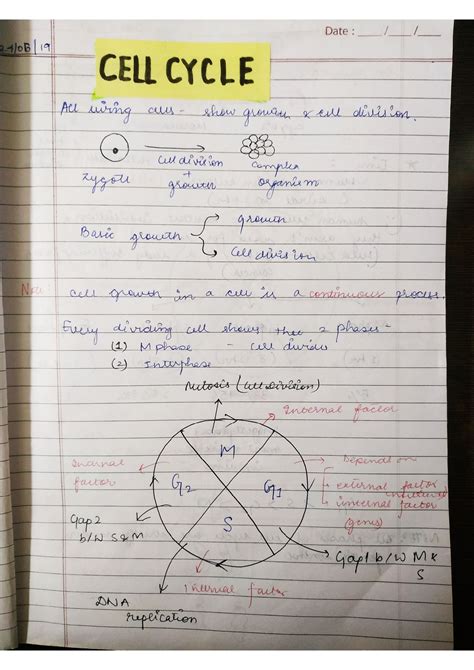 Date : ___/___/___
24/08/19
CELL CYCLE
All living cells - show growth & cell division.
Cell division
+
growth
Zygote
complex
organism
Basic growth
growth
Cell division
Note: cell growth in a cell is a continuous process.
Every dividing cell shows these 2 phases -
(1) M phase - cell division
(2) Interphase
Mitosis (Cell division)
Internal factor
M
G1
S
G2
Internal
factor
Depends on
external factor
internal factor
(genes)
Gap 2
b/w S & M
Gap 1 b/w M &
S
Internal factor
DNA
replication